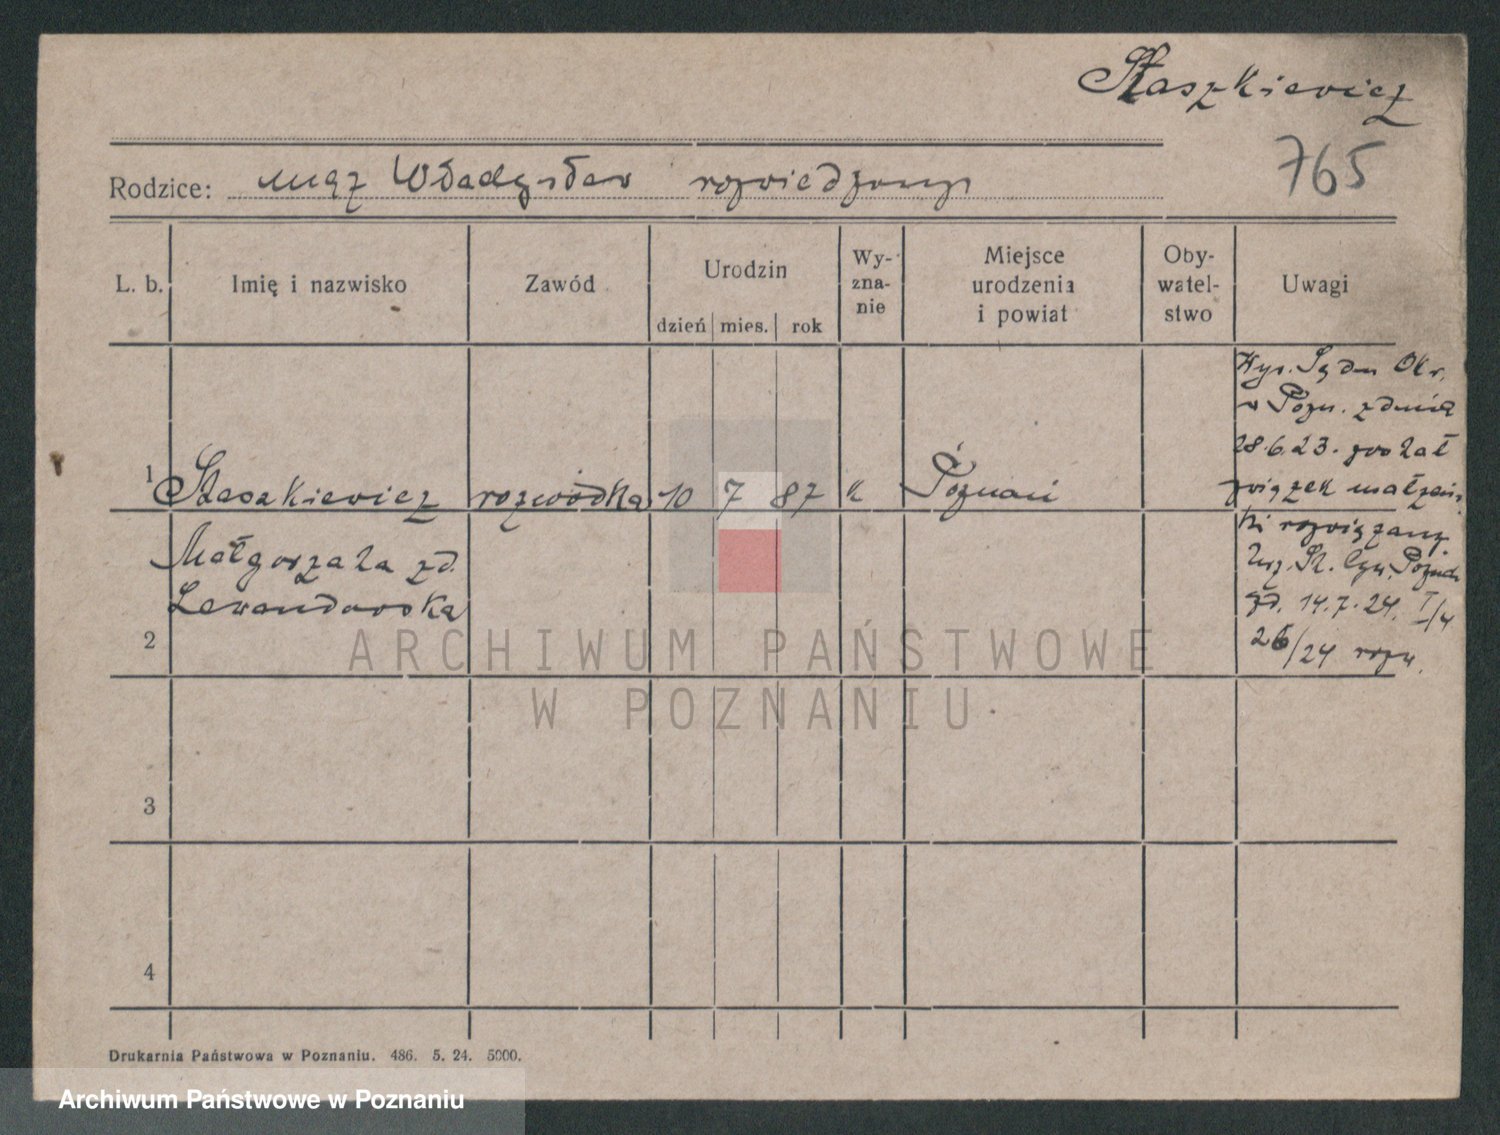 Staszkiewicz
765
Rodzice: mąż Władysław rozwiedziony
L. b. Imię i nazwisko Zawód Urodzin Wy-zna-nie Miejsce urodzenia i powiat Oby-watel-stwo Uwagi
dzień mies. rok
1 Staszkiewicz rozwódka 10 7 87 k Poznań
Małgorzata zd.
Lewandowska
Wyr. Sądu Okr.
w Pozn. z dnia
28.6.23. został
związek małżeń-
ki rozwiązany
Urz. St. Cyw. Poznań
zd. 14.7.24. I/4
26/24 rozw.
2
3
4
ARCHIWUM PAŃSTWOWE
W POZNANIU
Drukarnia Państwowa w Poznaniu. 486. 5. 24. 5000.
Archiwum Państwowe w Poznaniu